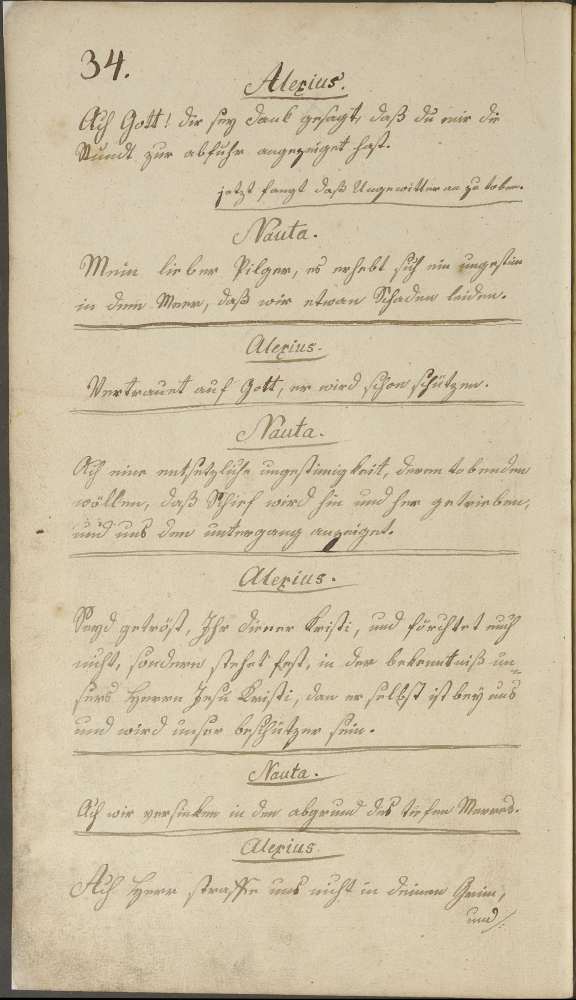 34.
Alexius.
Ach Gott! dir sey dank gesagt, daß du mir die
Stundt zur abfuhr angezeiget hast.
jetzt fangt daß Ungewitter an zu toben.
Nauta.
Mein lieber Pilger, es erhebt sich ein ungestim
in dem Meer, daß wir etwan Schaden leiden.
Alexius.
Vertrauet auf Gott, er wird schon schützen.
Nauta.
Ach eine entsetzliche ungestimigkeit, deren tobenden
wöllen, daß Schief wird hin und her getrieben,
und uns den untergang anzeiget.
Alexius.
Seyd getröst, Ihr diener Kristi, und förchtet euch
nicht, sondern stehet fest, in der bekenntniß un=
sers Herrn Jesu Kristi, dan er selbst ist bey uns
und wird unser beschützer sein.
Nauta.
Ach wir versinken in den abgrund des tiefen Meeres.
Alexius.
Ach Herr straffe uns nicht in deinen Grim,
und